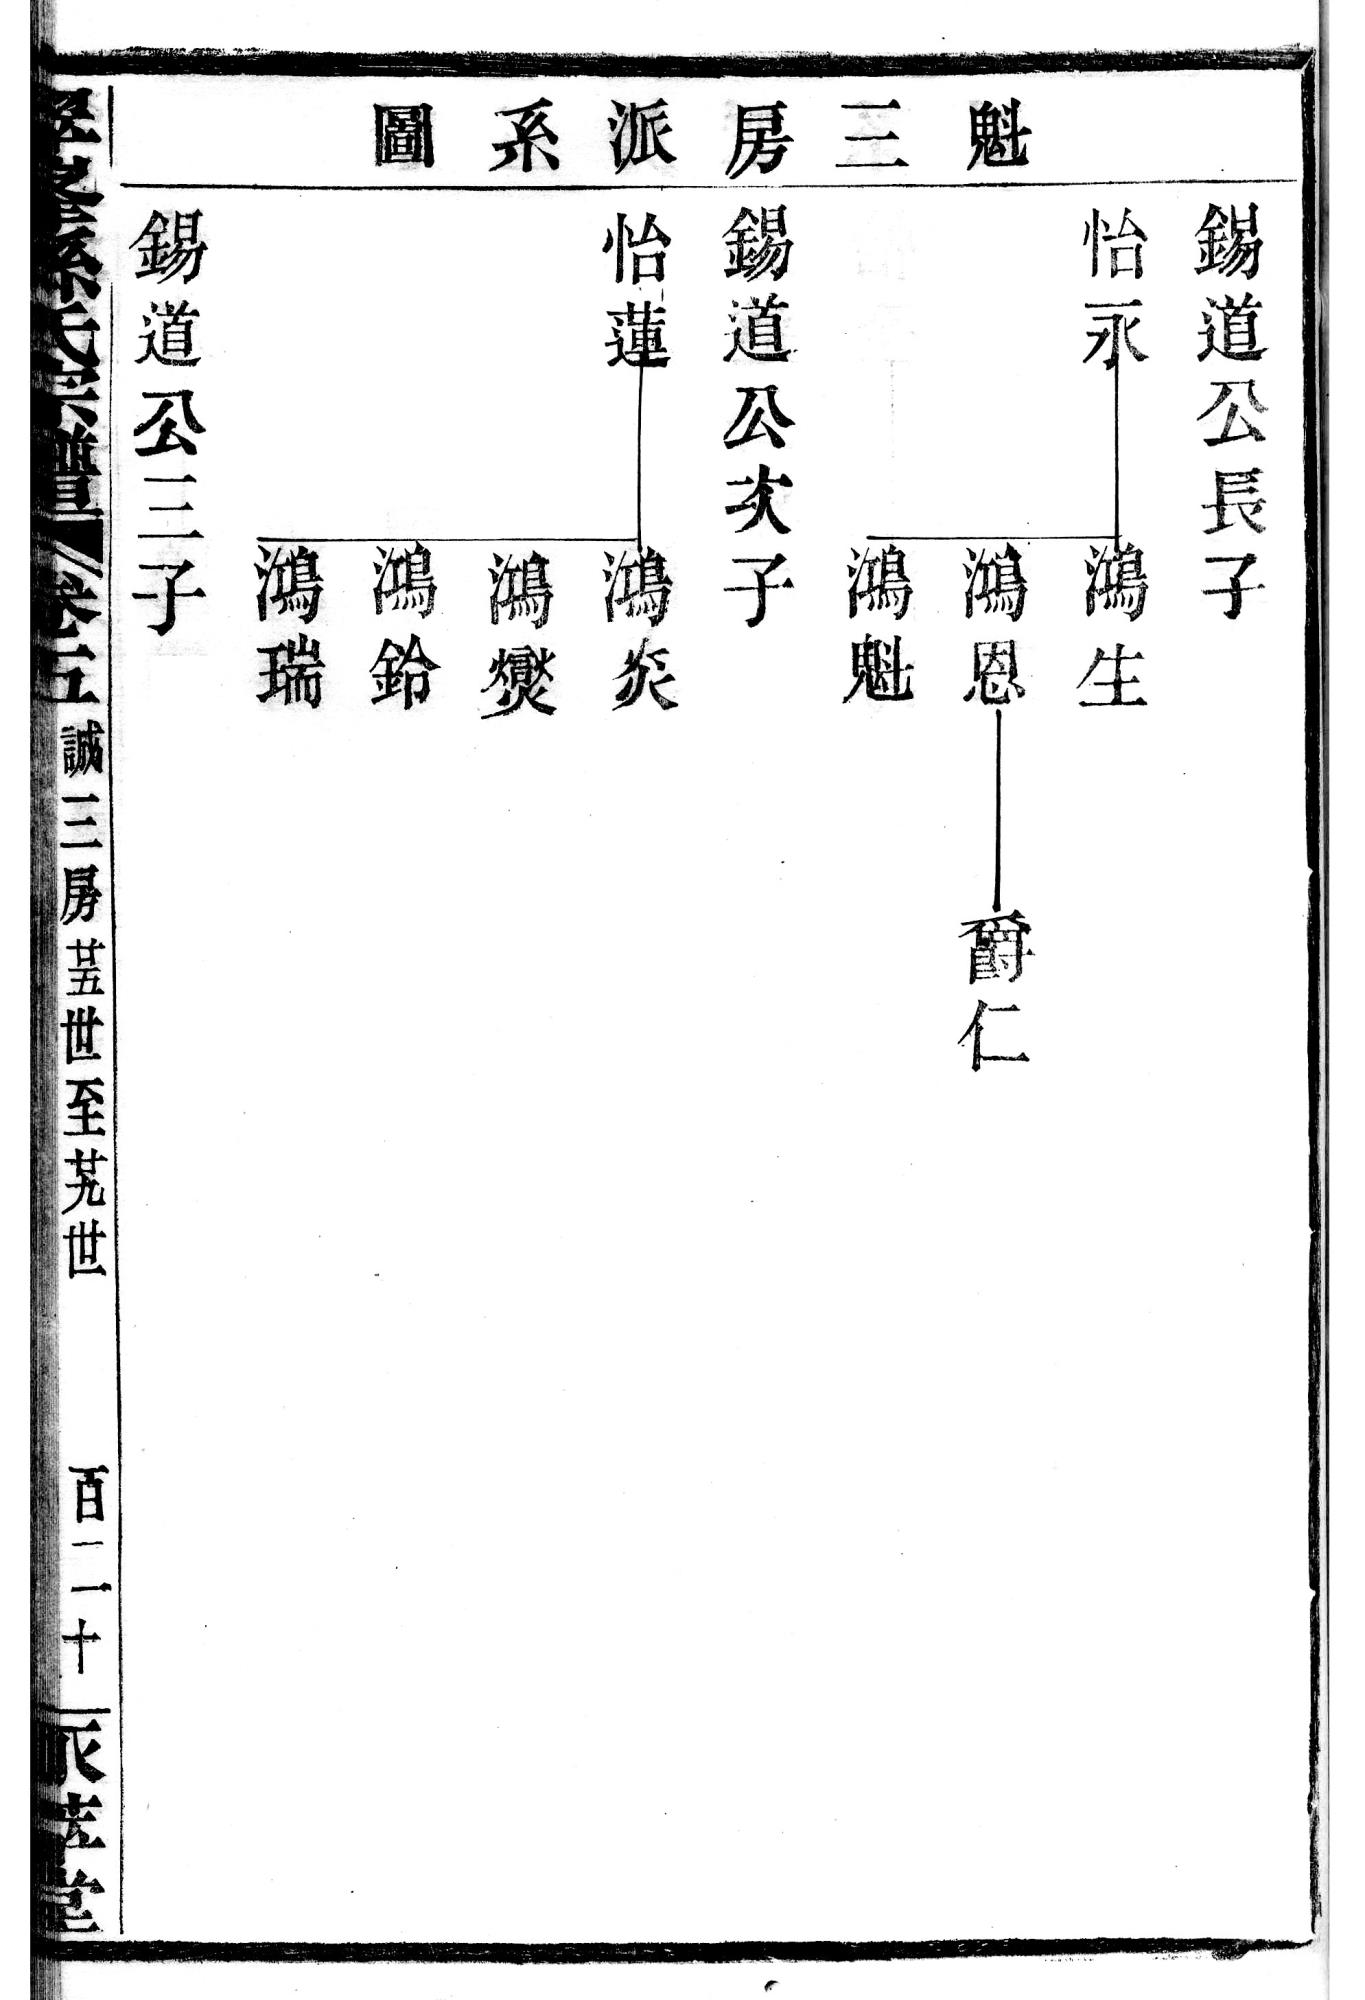 魁三房派系圖
錫道公長子
怡永
鴻生
鴻恩
爵仁
鴻魁
錫道公次子
怡蓮
鴻炎
鴻爕
鴻鈴
鴻瑞
錫道公三子
孫氏宗譜
卷五
誠三房
廿五世至廿九世
百二十
堂